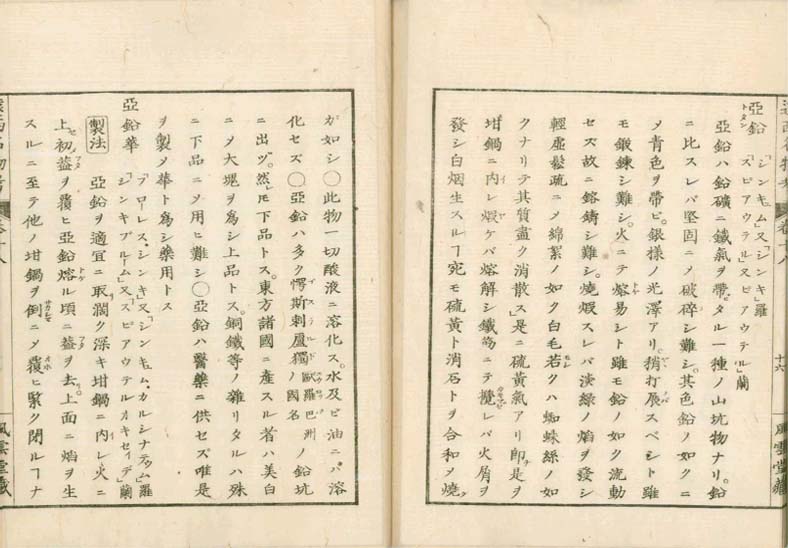 遠西名物考 巻十八 十六 風雲堂藏
亞鉛 「シンキュム」又「シンキ」羅
トタン 「スピアウテル」又「スピアウテル」蘭
亞鉛ハ鉛礦ニ鐵氣ヲ帶タル一種ノ山坑物ナリ。鉛
ニ比スレバ堅固ニメ破碎シ難シ。其色鉛ノ如クニ
メ青色ヲ帶ビ。銀樣ノ光澤アリ。稍打展スベシト雖
モ鍛錬シ難シ。火ニテ熔易シト雖モ鉛ノ如ク流動
セズ故ニ鎔鑄シ難シ。燒煆スレバ淡綠ノ焰ヲ發シ
輕虛鬆疏ニメ綿絮ノ如ク白毛若クハ蜘蛛絲ノ如
クナリテ其質盡ク消散ス」是ニ硫黃氣アリ即是ヲ
坩鍋ニ内レ煆ケバ熔解シ鐵篦ニテ攪レバ火屑ヲ
發シ白烟生スルヿ宛モ硫黃ト消石トヲ合和メ燒ク
ガ如シ〇此物一切酸液ニ溶化ス。水及ビ油ニハ溶
化セズ〇亞鉛ハ多ク愕斯剌盧獨 歐羅巴洲ノ國名 ノ鉛坑
ニ出ヅ。然レ𪜈下品トス。東方諸國ニ產スル者ハ美白
ニメ大塊ヲ爲シ上品トス。銅鐵等ノ雜リタルハ殊
ニ下品ニメ用ヒ難シ〇亞鉛ハ醫藥ニ供セズ唯是
ヲ製メ華ト爲シ藥用トス
亞鉛華 「フローレス、シンキ」又「シンキュム、カルシナテュム」羅
「シンキブルーム」又「スピアウテルオキセイデ」蘭
製法 亞鉛ヲ適宜ニ取濶ク深キ坩鍋ニ内レ火ニ
上セ初葢ヲ覆ヒ亞鉛熔ル頃ニ葢ヲ去リ。上面ニ焰ヲ生
スルニ至テ他ノ坩鍋ヲ倒ニメ覆ヒ緊ク閉ルヿナ
遠西名物考 巻十八 風雲堂藏